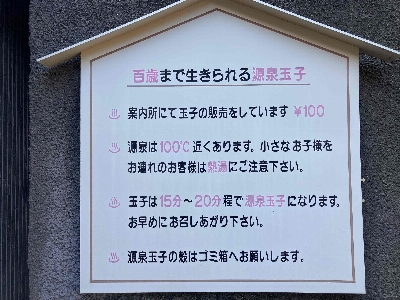 百歳まで生きられる源泉玉子
♨ 案内所にて玉子の販売をしています ¥100
♨ 源泉は100℃近くあります。小さなお子様を
お連れのお客様は熱湯にご注意下さい。
♨ 玉子は15分～20分程で源泉玉子になります。
お早めにお召しあがり下さい。
♨ 源泉玉子の殻はゴミ箱へお願いします。